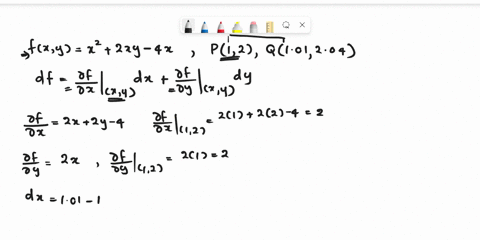 f(x,y) = x² + 2xy - 4x , P(1,2), Q(1.01, 2.04)
df = ∂f/∂x |(x,y) dx + ∂f/∂y |(x,y) dy
∂f/∂x = 2x + 2y - 4 ∂f/∂x |(1,2) = 2(1) + 2(2) - 4 = 2
∂f/∂y = 2x , ∂f/∂y |(1,2) = 2(1) = 2
dx = 1.01 - 1